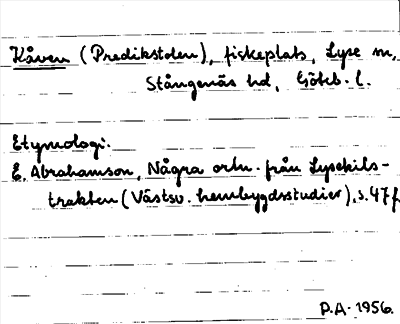 Kåven (Predikstolen), fiskeplats, Lyse sn,
Stångenäs hd, Göteb. l.
Etymologi.
E. Abrahamson, Några ortn. från Lysekils-
trakten (Västsv. hembygdsstudier), s. 47 f.
P.A. 1956.